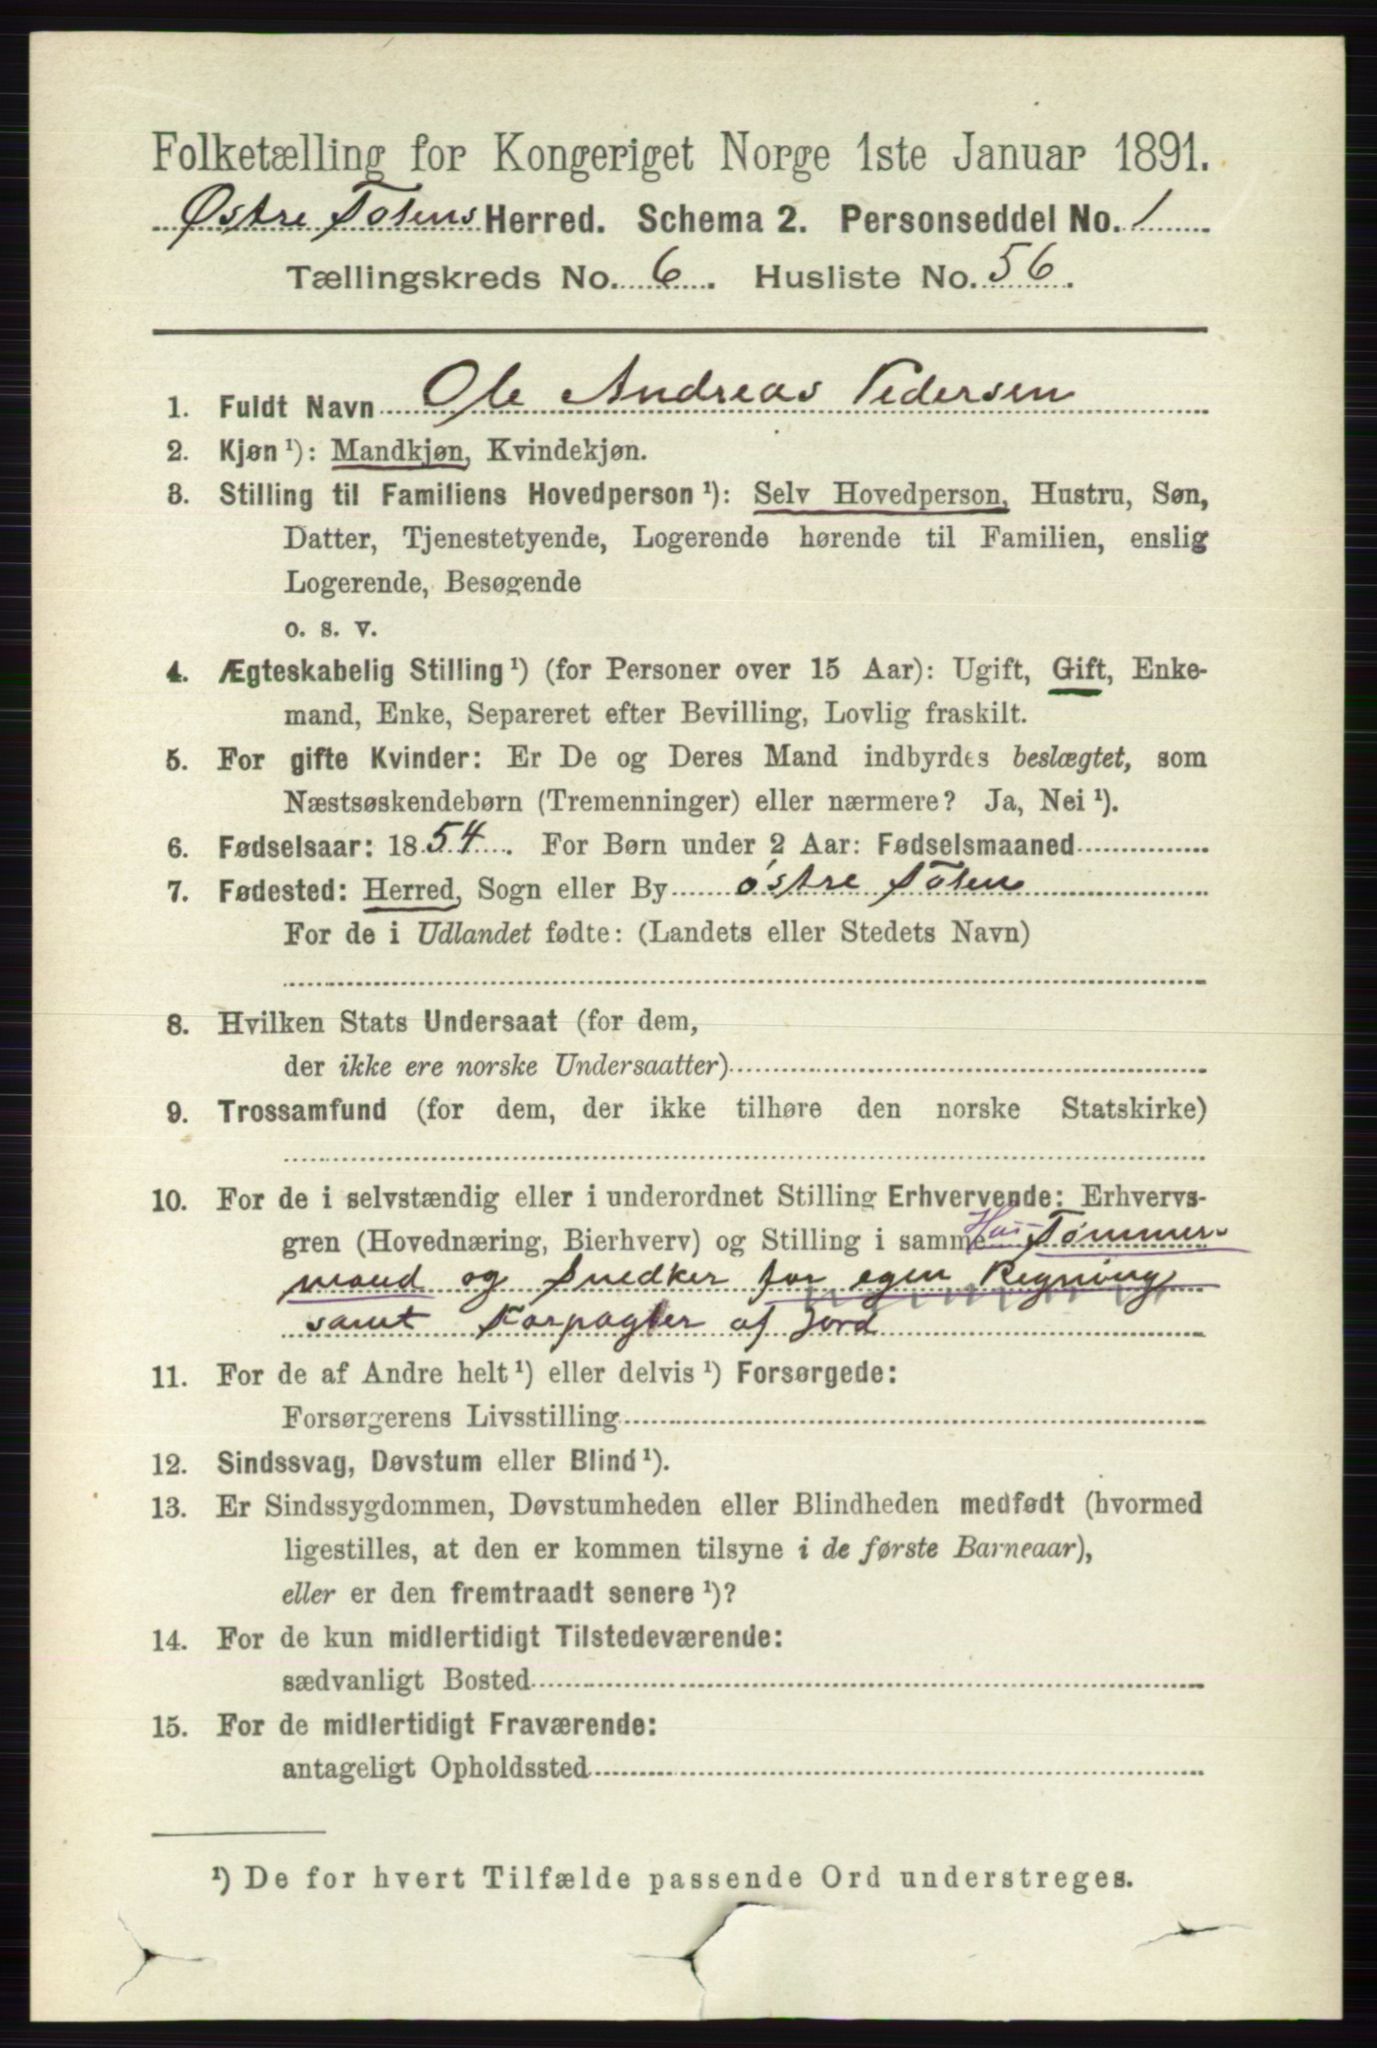 Folketælling for Kongeriget Norge 1ste Januar 1891.
Østre Totens Herred. Schema 2. Personseddel No. 1
Tællingskreds No. 6. Husliste No. 56.
1. Fuldt Navn Ole Andreas Pedersen
2. Kjøn¹): Mandkjøn, Kvindekjøn.
3. Stilling til Familiens Hovedperson¹): Selv Hovedperson, Hustru, Søn,
Datter, Tjenestetyende, Logerende hørende til Familien, enslig
Logerende, Besøgende
o. s. v.
4. Ægteskabelig Stilling¹) (for Personer over 15 Aar): Ugift, Gift, Enke-
mand, Enke, Separeret efter Bevilling, Lovlig fraskilt.
5. For gifte Kvinder: Er De og Deres Mand indbyrdes beslægtet, som
Næstsøskendebørn (Tremenninger) eller nærmere? Ja, Nei¹).
6. Fødselsaar: 1854. For Børn under 2 Aar: Fødselsmaaned
7. Fødested: Herred, Sogn eller By østre Toten
For de i Udlandet fødte: (Landets eller Stedets Navn)
8. Hvilken Stats Undersaat (for dem,
der ikke ere norske Undersaatter)
9. Trossamfund (for dem, der ikke tilhøre den norske Statskirke)
10. For de i selvstændig eller i underordnet Stilling Erhvervende: Erhvervs-
gren (Hovednæring, Bierhverv) og Stilling i samme Hus- Tømmer-
mand og Snedker for egen Regning
samt Forpagter af Jord
11. For de af Andre helt¹) eller delvis¹) Forsørgede:
Forsørgerens Livsstilling
12. Sindssvag, Døvstum eller Blind¹).
13. Er Sindssygdommen, Døvstumheden eller Blindheden medfødt (hvormed
ligestilles, at den er kommen tilsyne i de første Barneaar),
eller er den fremtraadt senere¹)?
14. For de kun midlertidigt Tilstedeværende:
sædvanligt Bosted
15. For de midlertidigt Fraværende:
antageligt Opholdssted
¹) De for hvert Tilfælde passende Ord understreges.